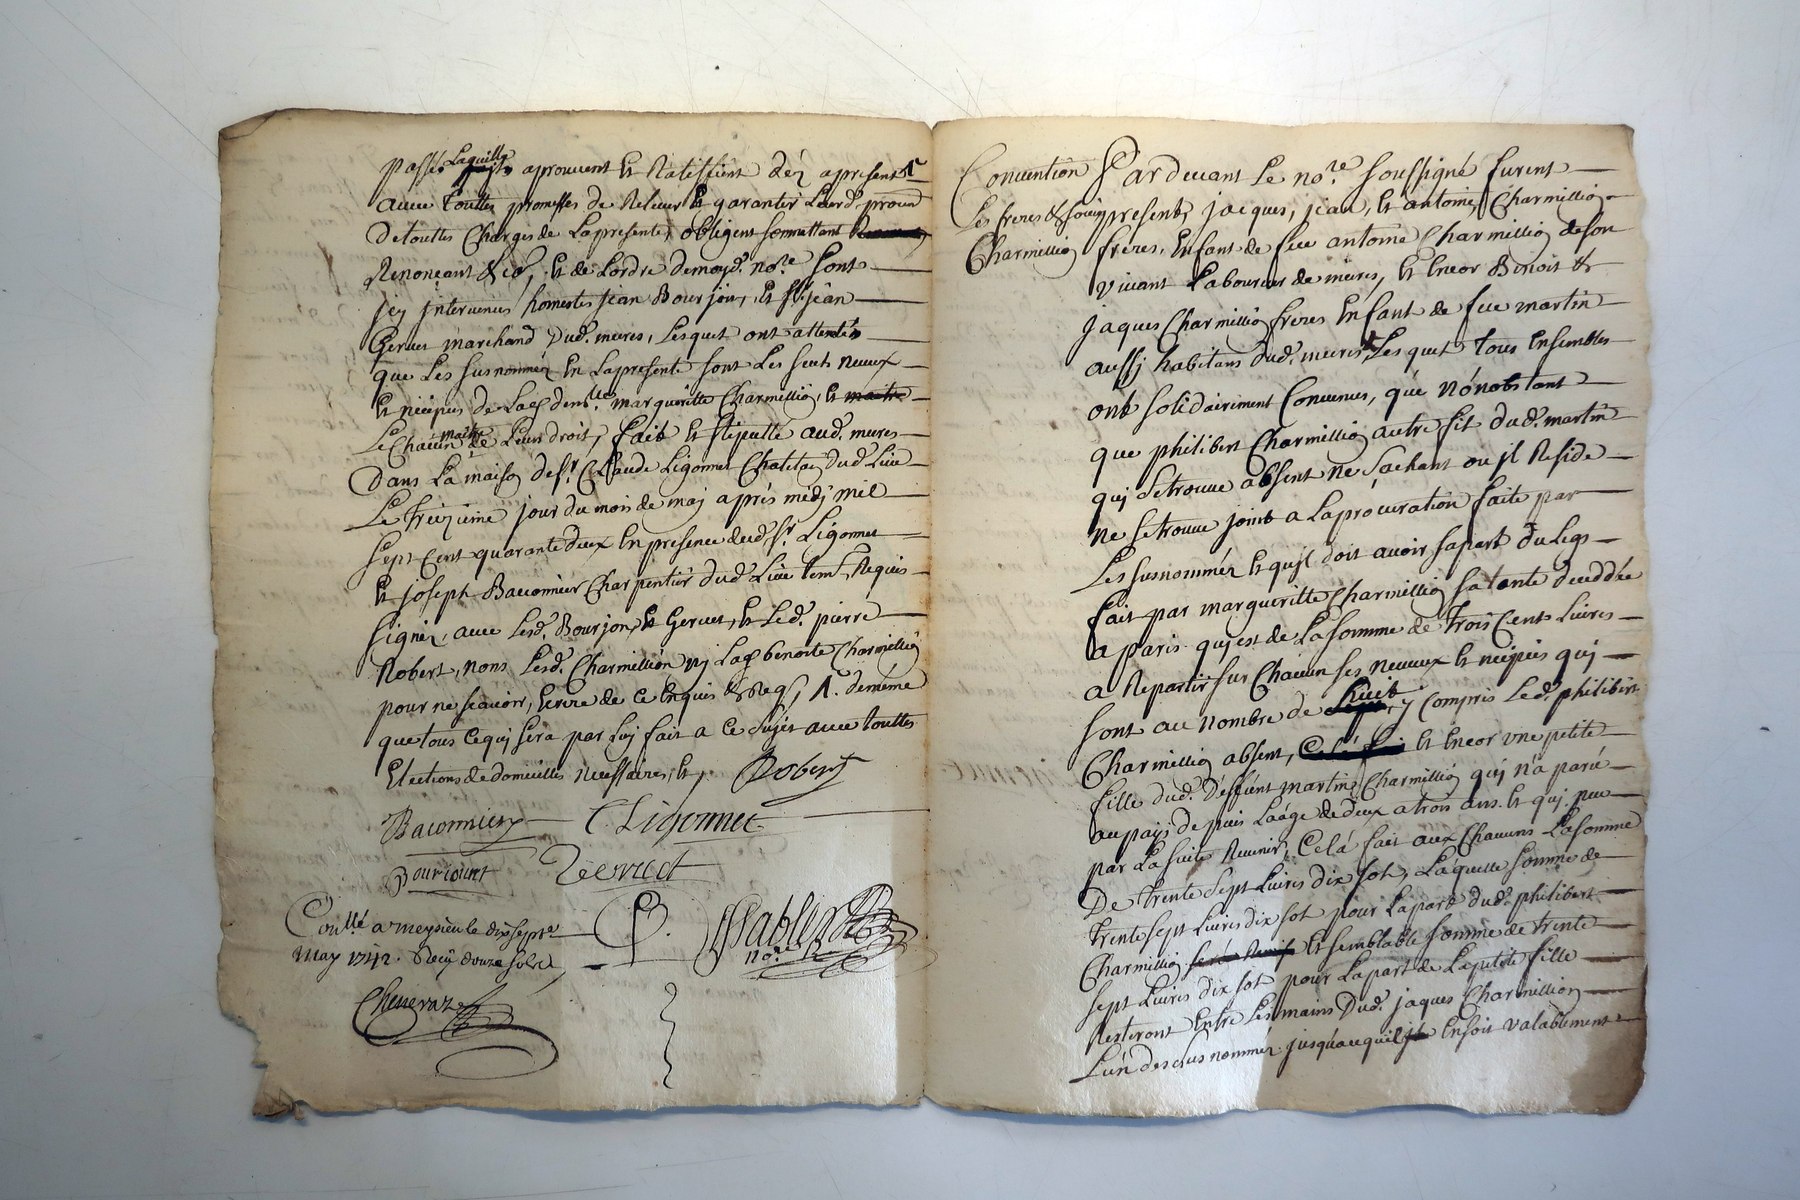 passé laquille aprouvent et Ratiffient déz apresent
avec touttes promesses de Relever et garantir Leurd. procur
detouttes Charges de Lapresente, obligent soumettant
Renonçant &c, et de Lordre demoyd. no.re sont
jcy jntervenus honnestes jean Bourjon, et Sr jean
Gervet marchand dud. meires, Lesquet ont attestés
que Les susnomméz En Lapresente sont Les seuls neveux
et niépces de Lad. deff.te margueritte Charmillion, et maitre
Le Chacun maitre de Leurs droits, fait et stipullé aud. meires
Dans La maison de Sr Claude Ligonnet Chatelain dud. Lieu
Le Treizième jour du mois de maj aprés médj mil
sept Cent quarante deux En presence dud. Sr Ligonnet
et joseph Baconnier Charpentier dud. Lieu tem. Requis
signéz, avec Lesd. Bourjon, et Gervet, et Led. pierre
Robert, nons Lesd. Charmillion nj Lad. benoite Charmillion
pour ne scavoir, Ecrire de ce Enquis & Req, demême
que tous cequj sera par Luj fait a ce Sujet avec touttes
Elections de domicilles nécessaires, et, Robert
Baconnier CLigonnet
Bourjont Gervet
Con.llé a meysieu le dix sept.e
May 1742. Reçu douze sols
Chenevaz
Sablier
no.re
Convention Pardevant Le no.re soussigné furent
Les freres & presents jacques, jean, et antoine Charmillion
Charmillion freres, Enfant de feu antoine Charmillion de son
vivant Laboureur de meires, et Encor Benoit &
jaques Charmillion freres Enfant de feu martin
aussj habitans dud. meires, Lesquet tous Ensembles
ont solidairiment Convenus, qué nónobstant
que philibert Charmillion autre fit dud. martin
quj setrouve absent ne sachant ou jl Reside
ne setrouve joint a Laprocuration faite par
Les susnomméz et qujl doit avoir sapart du Legs
fait par margueritte Charmillion sa tente deceddée
a paris quj est de La somme de trois Cents Livres
a Repartir sur Chacun ses neveux et niépces quj
sont au nombre de huit y compris Led. philibert
Charmillion absent, Celà fai et Encor une petite
fille dud. deffunt martin Charmillion quj n'a parû
aupaÿs depuis Laâge de deux a trois ans, et quj peu
par La suite Revenir, Celà fait aux Chacuns La somme
De trente sept Livres dix sol, Láquelle somme de
trente sept Livres dix sol pour Lapart dud. philibert
Charmillion et semblable somme de trente
sept Livres dix sol pour Lapart de Lapetite fille
Resteront Entre Les mains dud. jaques Charmillion
L'un des susnomméz jusquàcequil Ensoit valablement